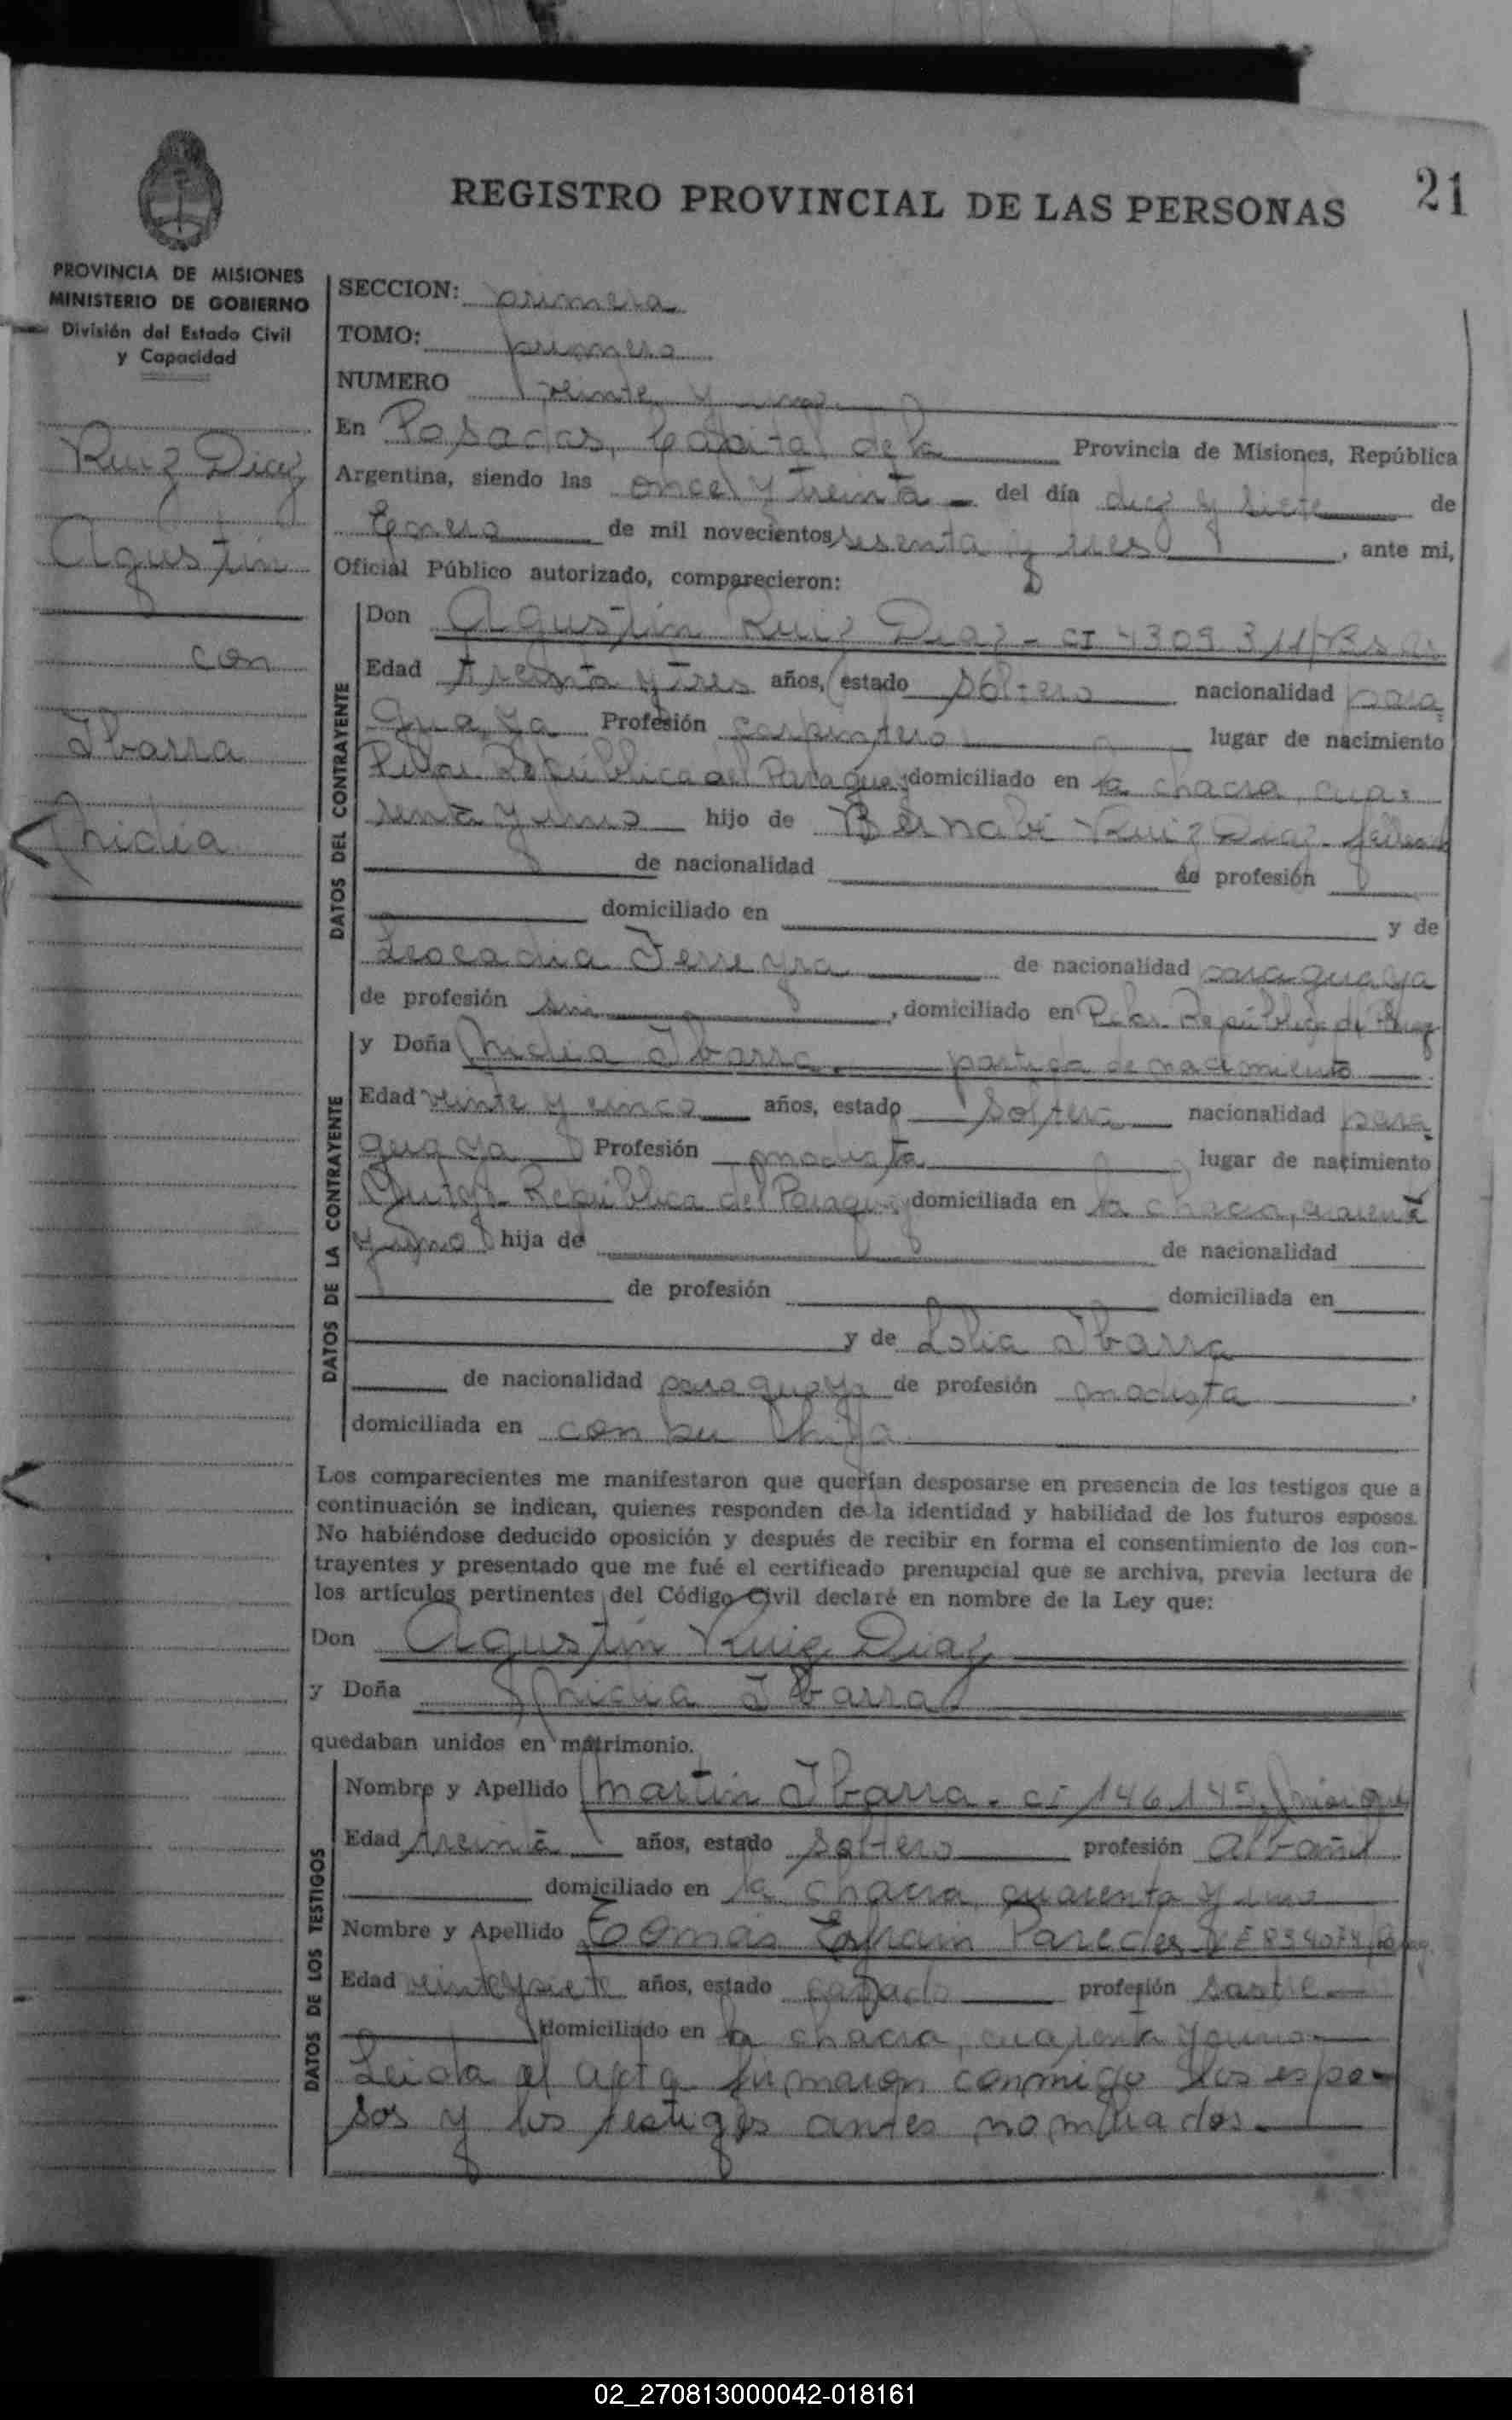 REGISTRO PROVINCIAL DE LAS PERSONAS
21
PROVINCIA DE MISIONES
MINISTERIO DE GOBIERNO
División del Estado Civil
y Capacidad
Ruiz Diaz
Agustin
con
Ibarra
Nidia
SECCION: primera
TOMO: primero
NUMERO veinte y uno
En Posadas, Capital de la Provincia de Misiones, República
Argentina, siendo las once y treinta del día diez y siete de
Enero de mil novecientos sesenta y tres, ante mi,
Oficial Público autorizado, comparecieron:
DATOS DEL CONTRAYENTE
Don Agustin Ruiz Diaz - CI 4309311
Edad treinta y tres años, estado soltero nacionalidad para
guaya Profesión carpintero lugar de nacimiento
Pilar República del Paraguay domiciliado en la chacra, cua=
renta y uno hijo de Bernabé Ruiz Diaz - fallecido
de nacionalidad de profesión
domiciliado en y de
Leocadia Ferreyra de nacionalidad paraguaya
de profesión sin, domiciliado en Pilar República del
DATOS DE LA CONTRAYENTE
y Doña Nidia Ibarra. partida de nacimiento
Edad veinte y cinco años, estado soltera nacionalidad para
guaya Profesión modista lugar de nacimiento
República del Paraguay domiciliada en la chacra, cuarenta
y uno hija de de nacionalidad
de profesión domiciliada en
y de Ibarra
de nacionalidad paraguaya de profesión modista.
domiciliada en con su hija
Los comparecientes me manifestaron que querían desposarse en presencia de los testigos que a
continuación se indican, quienes responden de la identidad y habilidad de los futuros esposos.
No habiéndose deducido oposición y después de recibir en forma el consentimiento de los con-
trayentes y presentado que me fué el certificado prenupcial que se archiva, previa lectura de
los artículos pertinentes del Código Civil declaré en nombre de la Ley que:
Don Agustin Ruiz Diaz
y Doña Nidia Ibarra
quedaban unidos en matrimonio.
DATOS DE LOS TESTIGOS
Nombre y Apellido Martin Ibarra. CI 146145
Edad treinta años, estado soltero profesión albañil
domiciliado en la chacra, cuarenta y uno
Nombre y Apellido Tomás Efrain Paredes
Edad veinte y siete años, estado casado profesión sastre
domiciliado en la chacra, cuarenta y uno
Leida el acta firmaron conmigo los espo-
sos y los testigos antes nombrados.
02_270813000042-018161